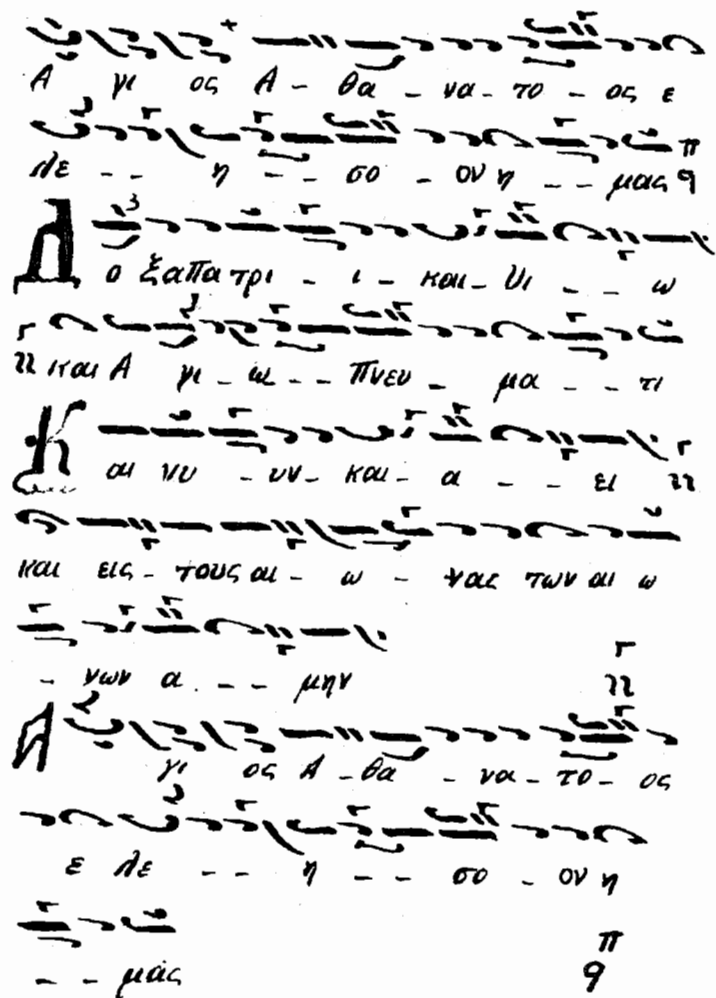 Α γι ος Α - θα - να - το - ος ε
λε - - η - - σο - ον η - - μας π q
Δ ο ξα Πα τρι - ι - και - Υι - - ω
και Α γι - ω - - Πνευ - μα - - τι
Κ αι νυ - υν - και - α - - ει
και εις - τους αι - ω - νας των αι ω
- νων α - - - μην
Α γι ος Α - θα - να - το - ος
ε λε - - η - - σο - ον η
- - μάς π q